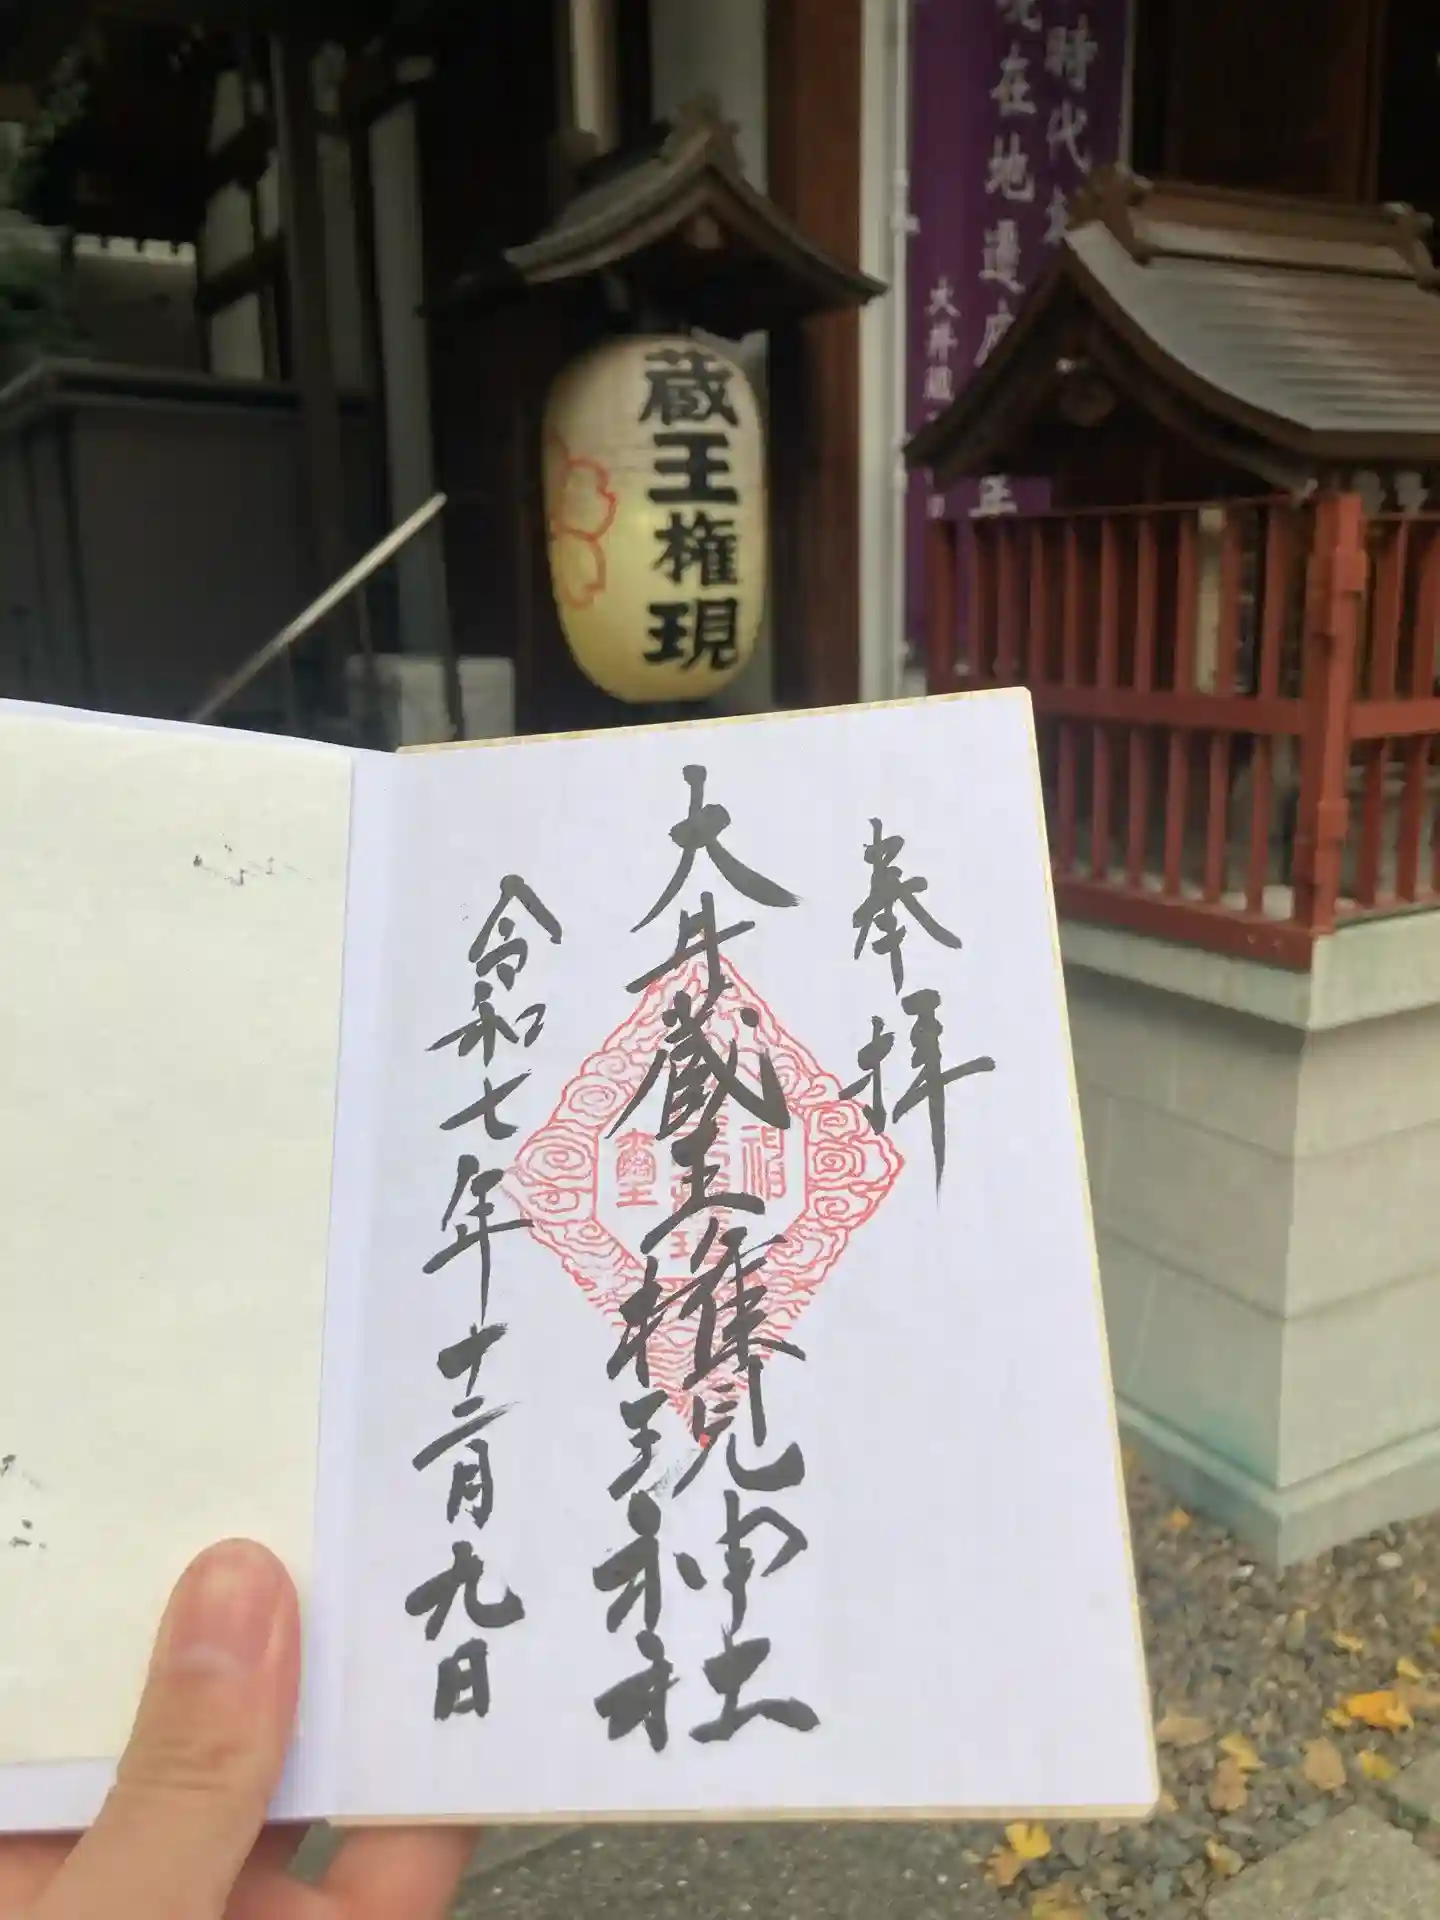 蔵王権現
時代
在地遷座
年
大井蔵
奉拝
大井蔵王権現神社
令和七年十二月九日